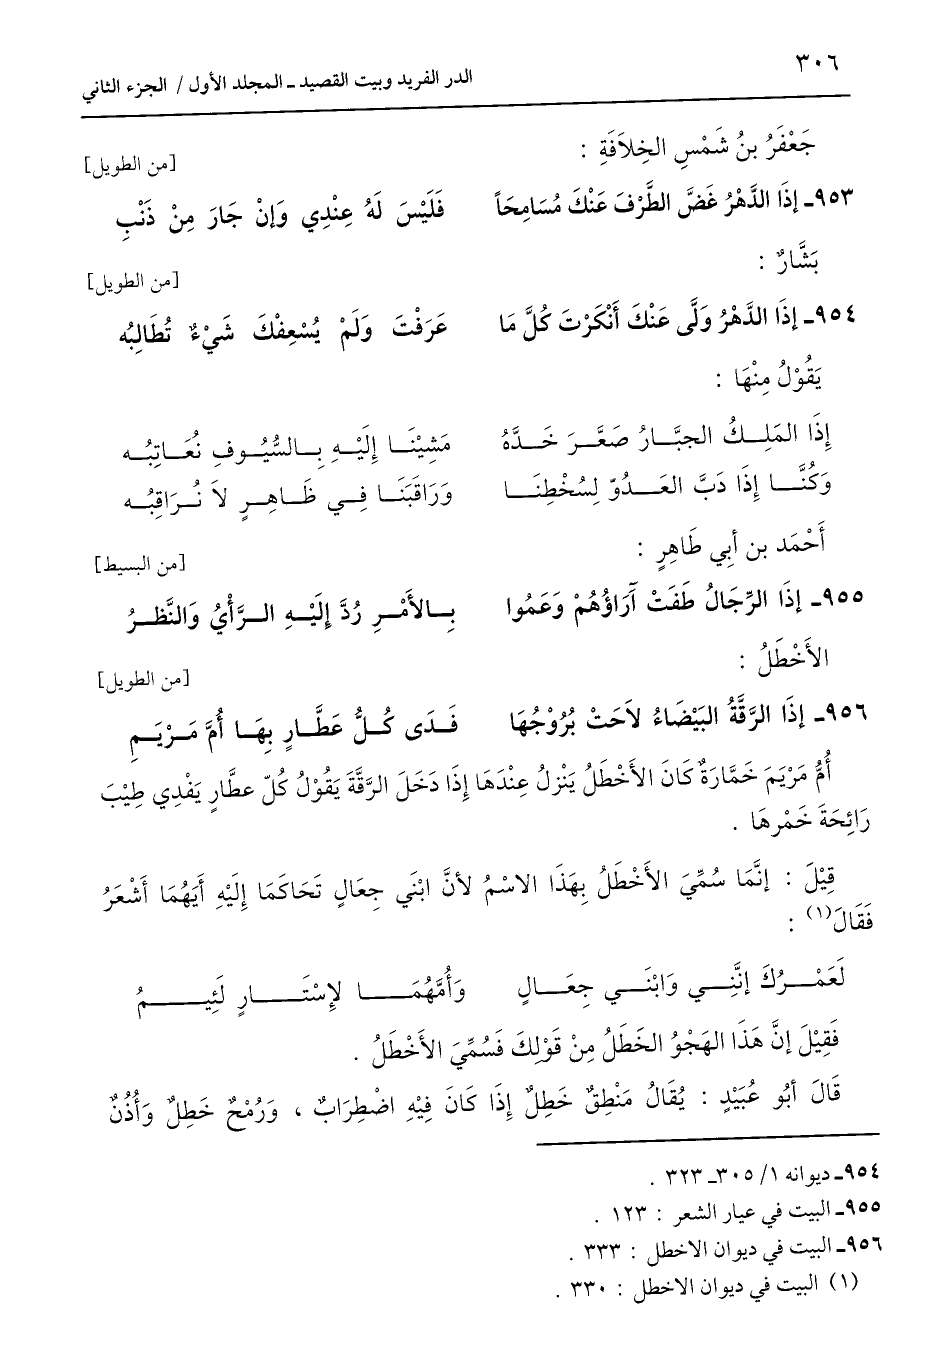 ٣٠٦
الدر الفريد وبيت القصيد ـ المجلد الأول / الجزء الثاني
جَعْفَرُ بنُ شَمْسِ الخِلاَفَةِ :
[من الطويل]
٩٥٣ـ إذَا الدَّهْرُ غَضَّ الطَّرْفَ عَنْكَ مُسَامِحَاً فَلَيْسَ لَهُ عِنْدِي وَإنْ جَارَ مِنْ ذَنْبِ
بَشَّارٌ :
[من الطويل]
٩٥٤ـ إذَا الدَّهْرُ وَلَّى عَنْكَ أَنْكَرْتَ كُلَّ مَا عَرَفْتَ وَلَمْ يُسْعِفْكَ شَيْءٌ تُطَالِبُه
يَقُوْلُ مِنْهَا :
إذَا المَلِكُ الجبَّارُ صَعَّرَ خَدَّهُ مَشِيْنَا إلَيْهِ بِالسُّيُوفِ نُعَاتِبُه
وَكُنَّا إذَا دَبَّ العَدُوّ لِسُخْطِنَا وَرَاقَبَنَا فِي ظَاهِرٍ لاَ نُرَاقِبُه
أَحْمَد بن أبِي طَاهِرٍ :
[من البسيط]
٩٥٥ـ إذَا الرِّجَالُ طَفَتْ آرَاؤُهُمْ وَعَمُوا بِالأَمْرِ رُدَّ إلَيْهِ الرَّأْيُ وَالنَّظرُ
الأَخْطَلُ :
[من الطويل]
٩٥٦ـ إذَا الرَّقَّةُ البَيْضَاءُ لاَحَتْ بُرُوْجُهَا فَدَى كُلُّ عَطَّارٍ بِهَا أُمَّ مَرْيَمِ
أُمُّ مَرْيَمَ خَمَّارَةٌ كَانَ الأَخْطَلُ يَنْزِلُ عِنْدَهَا إذَا دَخَلَ الرَّقَّةَ يَقُوْلُ كُلّ عطَّارٍ يَفْدِي طِيْبَ
رَائِحَةَ خَمْرِهَا .
قِيْلَ : إنَّمَا سُمِّيَ الأَخْطَلُ بِهَذَا الاسْمُ لأنَّ ابْنَي جِعَالٍ تَحَاكَمَا إلَيْهِ أَيَهُمَا أَشْعَرُ
فَقَالَ(١) :
لَعَمْرُكَ إنَّنِي وَابْنَي جِعَالٍ وَأُمَّهُمَا لإسْتَارٍ لَئِيمُ
فَقِيْلَ إنَّ هَذَا الهَجْوُ الخَطَلُ مِنْ قَوْلِكَ فَسُمِّيَ الأَخْطَلُ .
قَالَ أبُو عُبَيْدٍ : يُقَالُ مَنْطِقٌ خَطِلٌ إذَا كَانَ فِيْهِ اضْطِرَابٌ ، وَرُمْحٌ خَطِلٌ وَأُذُنٌ
٩٥٤ـ ديوانه ١/ ٣٠٥ـ ٣٢٣ .
٩٥٥ـ البيت في عيار الشعر : ١٢٣ .
٩٥٦ـ البيت في ديوان الاخطل : ٣٣٣ .
(١) البيت في ديوان الاخطل : ٣٣٠ .